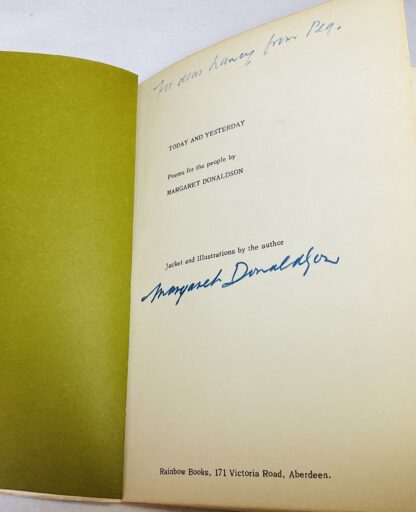 For dear Laney from Peg.
TODAY AND YESTERDAY
Poems for the people by
MARGARET DONALDSON
Jacket and Illustrations by the author
Margaret Donaldson
Rainbow Books, 171 Victoria Road, Aberdeen.